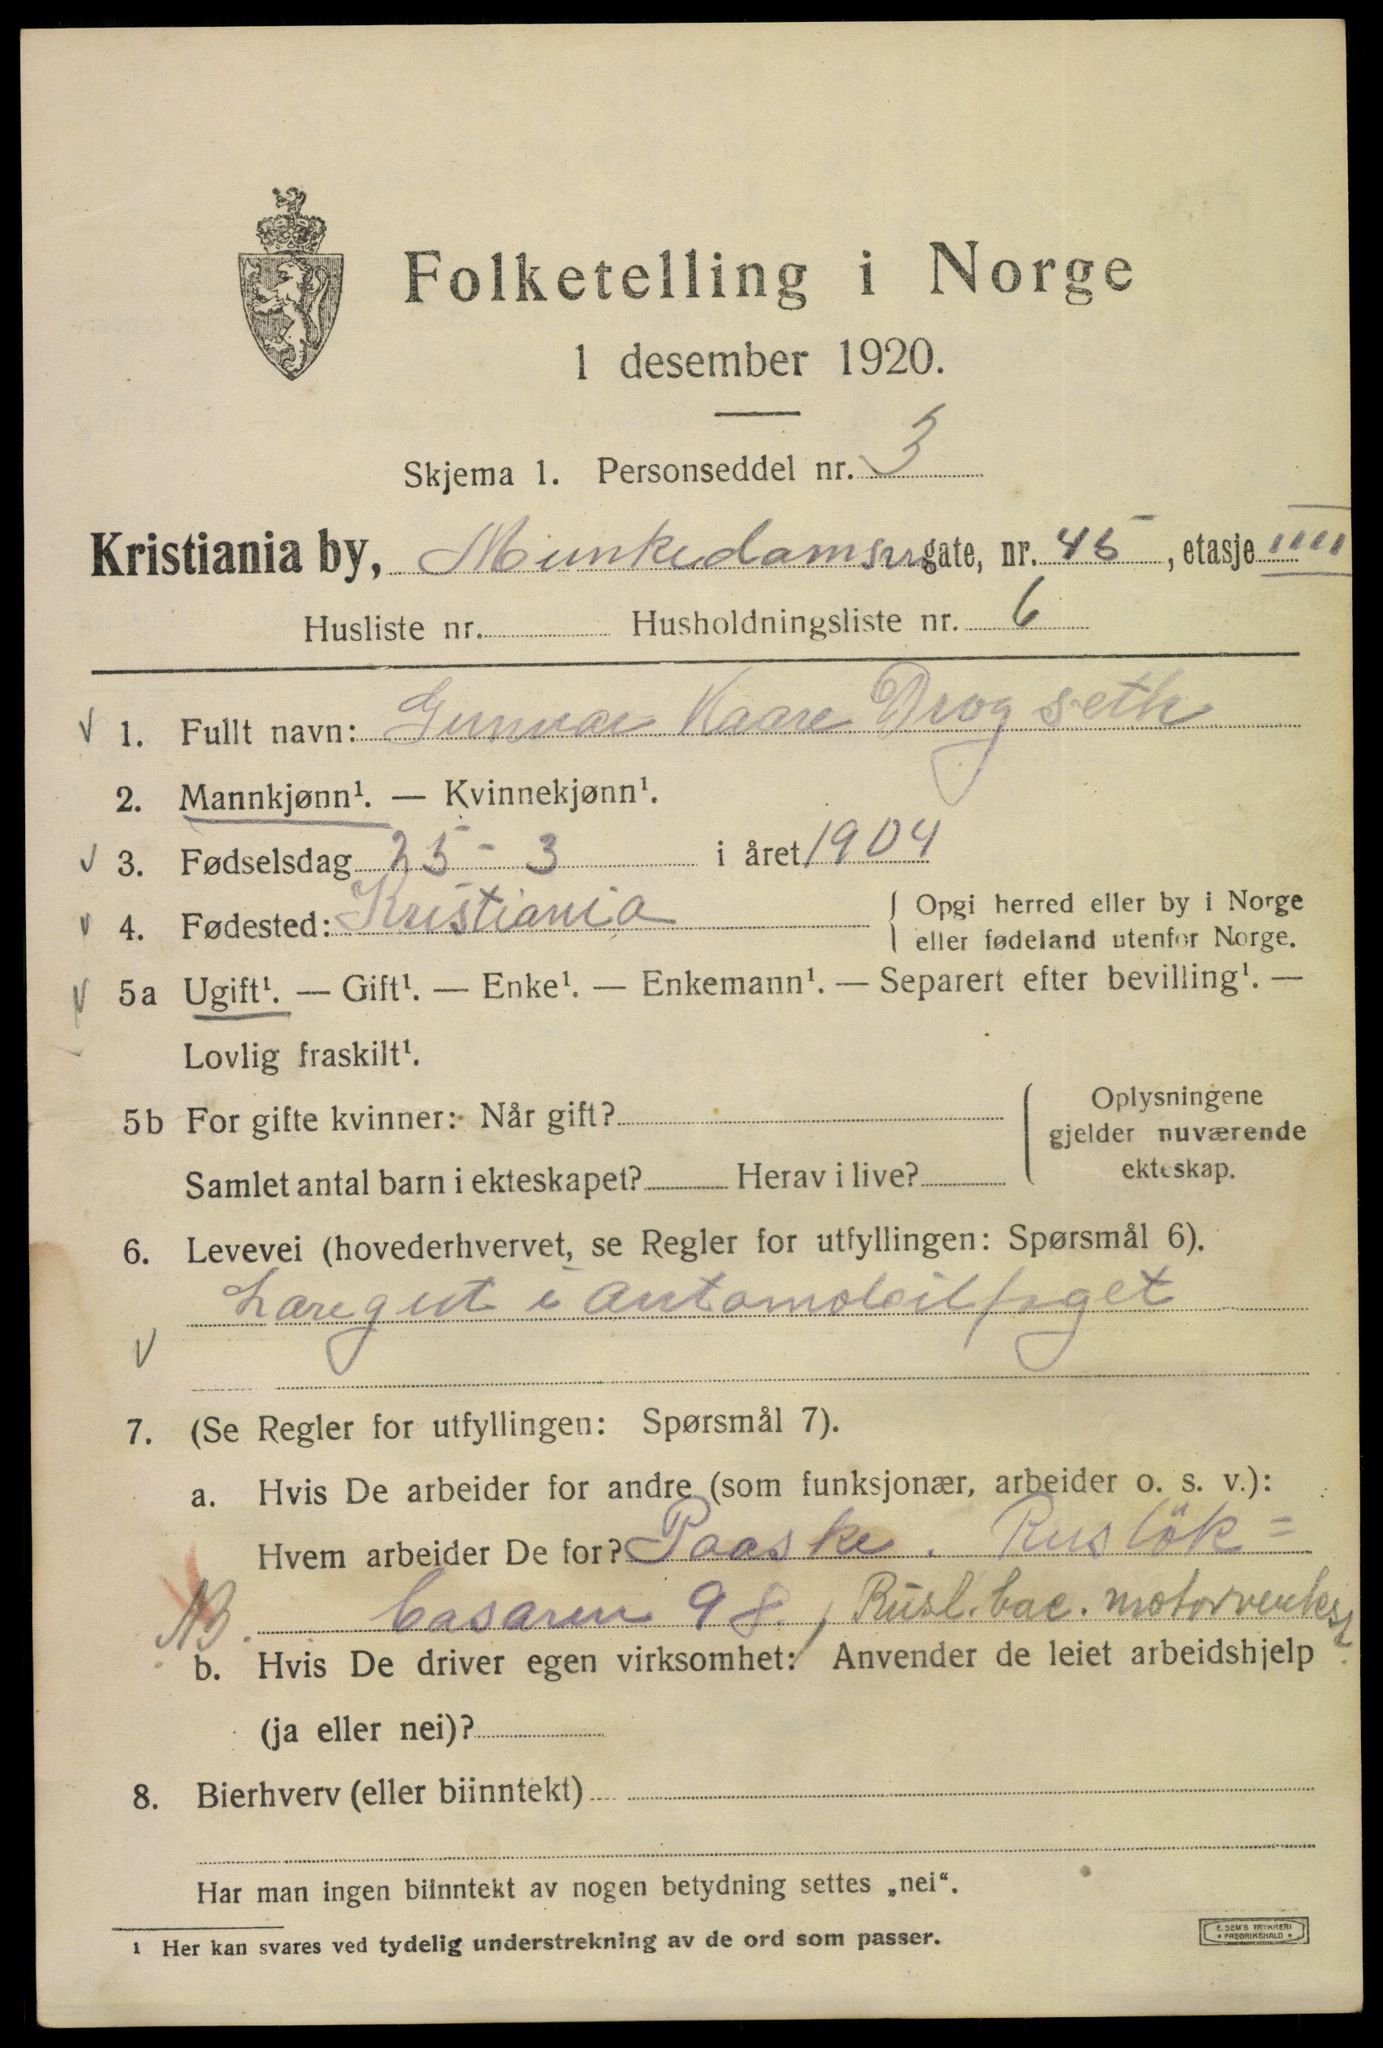 Folketelling i Norge
1 desember 1920.
Skjema 1. Personseddel nr. 3
Kristiania by, Munkedamsvgate, nr. 45, etasje IIII
Husliste nr. Husholdningsliste nr. 6
1. Fullt navn: Gunnar Kaare Drogseth
2. Mannkjønn¹. — Kvinnekjønn¹.
3. Fødselsdag 25 - 3 i året 1904
4. Fødested: Kristiania { Opgi herred eller by i Norge
eller fødeland utenfor Norge.
5a Ugift¹. — Gift¹. — Enke¹. — Enkemann¹. — Separert efter bevilling¹. —
Lovlig fraskilt¹.
5b For gifte kvinner: Når gift?
Samlet antal barn i ekteskapet? Herav i live?
Oplysningene
gjelder nuværende
ekteskap.
6. Levevei (hovederhvervet, se Regler for utfyllingen: Spørsmål 6).
Læregut i Automobilfaget
7. (Se Regler for utfyllingen: Spørsmål 7).
a. Hvis De arbeider for andre (som funksjonær, arbeider o. s. v.):
Hvem arbeider De for? Paaske. Ruslök=
NB. basaren 98, Rusl. bac. motorverkst.
b. Hvis De driver egen virksomhet: Anvender de leiet arbeidshjelp
(ja eller nei)?
8. Bierhverv (eller biinntekt)
Har man ingen biinntekt av nogen betydning settes „nei“.
1 Her kan svares ved tydelig understrekning av de ord som passer.
E. SEM'S TRYKKERI
• FREDRIKSHALD •